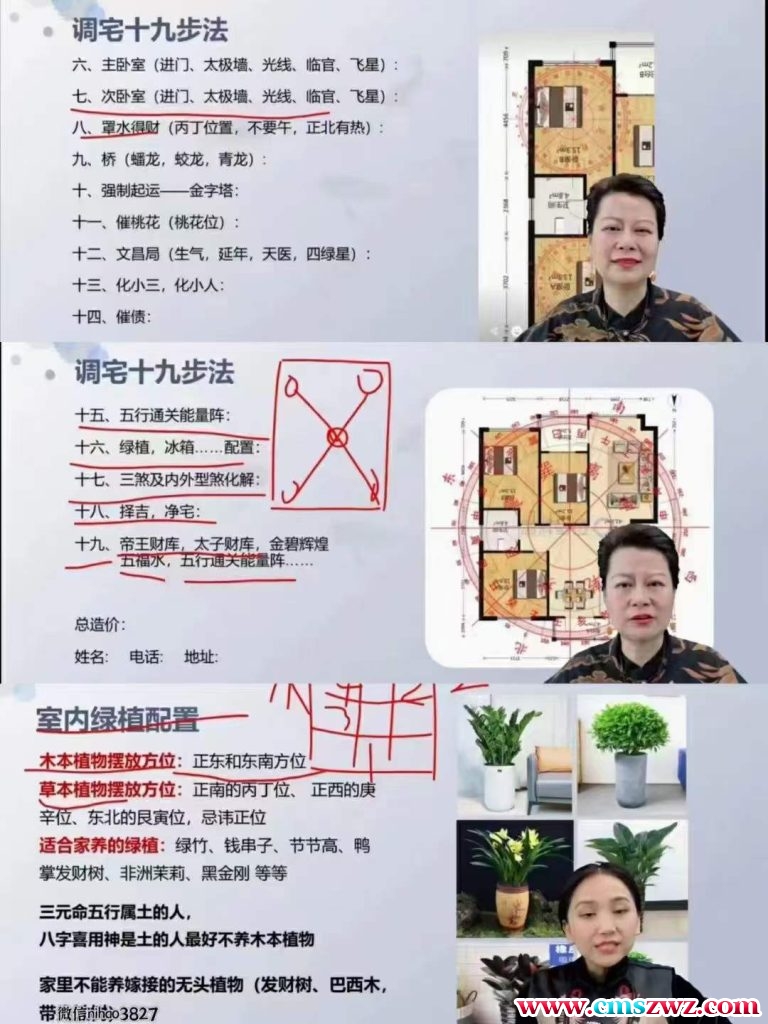 调宅十九步法
六、主卧室（进门、太极墙、光线、临官、飞星）：
七、次卧室（进门、太极墙、光线、临官、飞星）：
八、罩水得财（丙丁位置，不要午，正北有热）：
九、桥（蟠龙，蛟龙，青龙）：
十、强制起运——金字塔：
十一、催桃花（桃花位）：
十二、文昌局（生气，延年，天医，四绿星）：
十三、化小三，化小人：
十四、催债：
调宅十九步法
十五、五行通关能量阵：
十六、绿植，冰箱……配置：
十七、三煞及内外型煞化解：
十八、择吉，净宅：
十九、帝王财库，太子财库，金碧辉煌
五福水，五行通关能量阵……
总造价：
姓名： 电话： 地址:
室内绿植配置
木本植物摆放方位：正东和东南方位
草本植物摆放方位：正南的丙丁位、正西的庚
辛位、东北的艮寅位，忌讳正位
适合家养的绿植：绿竹、钱串子、节节高、鸭
掌发财树、非洲茉莉、黑金刚 等等
三元命五行属土的人，
八字喜用神是土的人最好不养木本植物
家里不能养嫁接的无头植物（发财树、巴西木，
3827
www.cmszwz.com